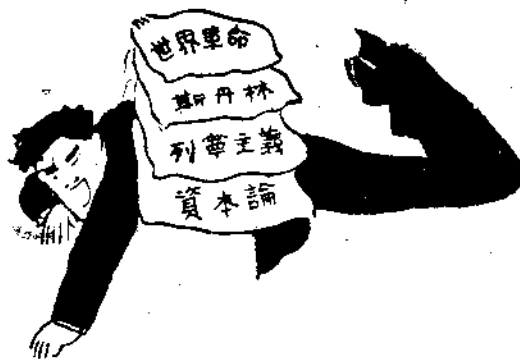 世界革命
斯丹林
列寧主義
資本論